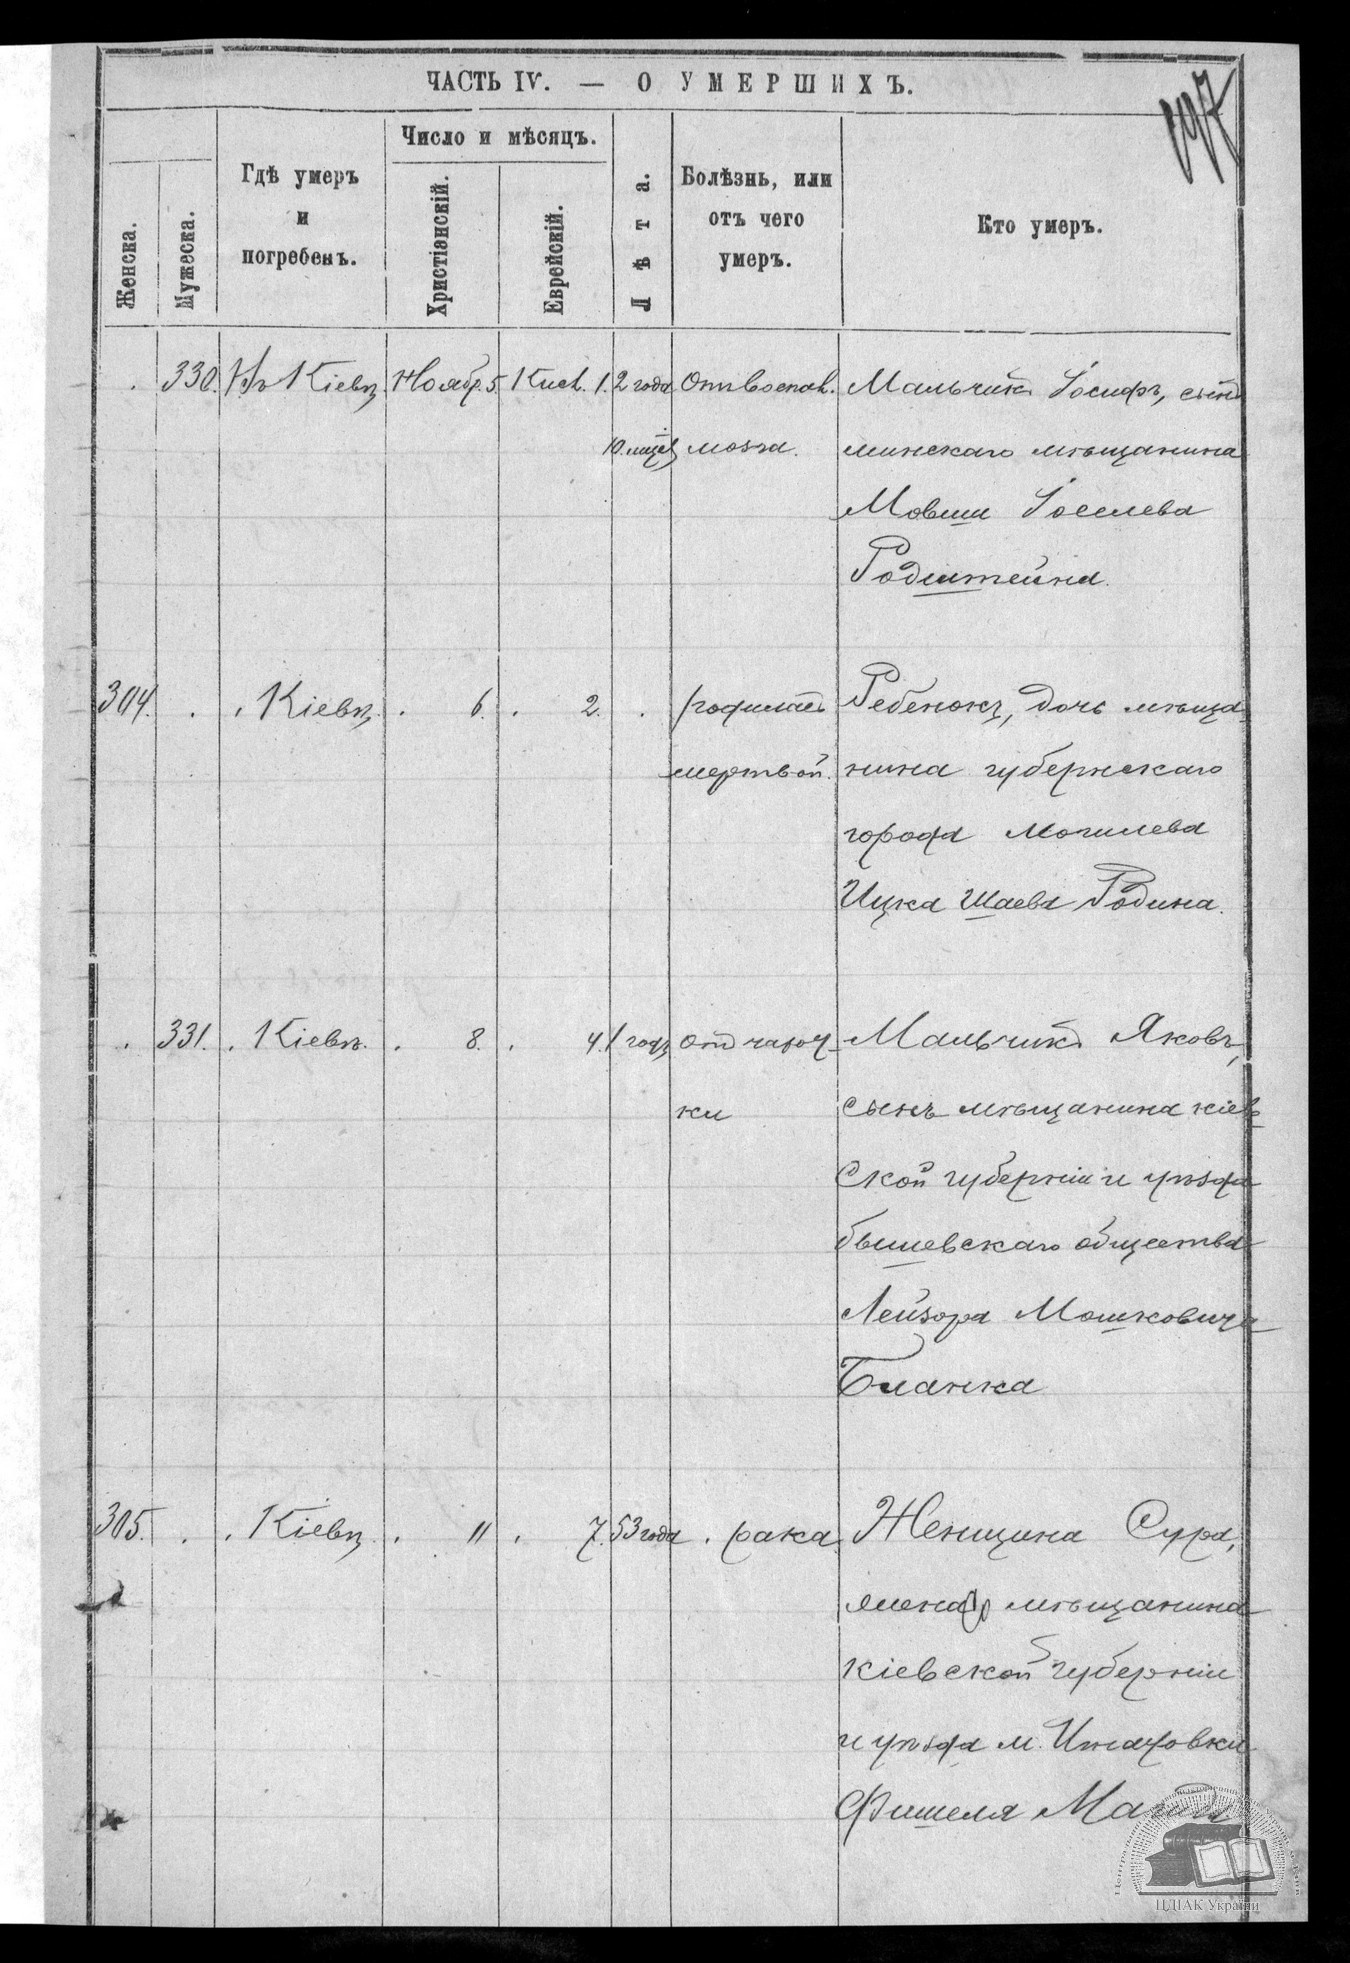 ЧАСТЬ IV. — О УМЕРШИХЪ.
Женска.
Мужеска.
Гдѣ умеръ
и
погребенъ.
Число и мѣсяцъ.
Христіанскій.
Еврейскій.
Лѣта.
Болѣзнь, или
отъ чего
умеръ.
Кто умеръ.
. 330. Въ Кіевѣ Ноябр. 5. Кисл. 1. 2 года От воспал. Мальчикъ Іосифъ, сынъ
10. мцев мозга. минскаго мѣщанина
Мовши Іоселева
Родштейна.
304. . . Кіевѣ . 6. . 2. . родилась Ребенокъ, дочь мѣща-
мертвой. нина губернскаго
города Могилева
Ицка Шаева Родина.
. 331. . Кіевѣ . 8. . 4. 1 годъ Отъ чахот- Мальчикъ Яковъ,
ки сынъ мѣщанина кіев-
ской губерніи и уѣзда
бышевскаго общества
Лейзора Мошковича
Бланка
305. . . Кіевѣ . 11 . 7. 53 года . рака. Женщина Сура,
жена мѣщанина
кіевской губерніи
и уѣзда м. Игнатовки
Фишеля
ЦДІАК України